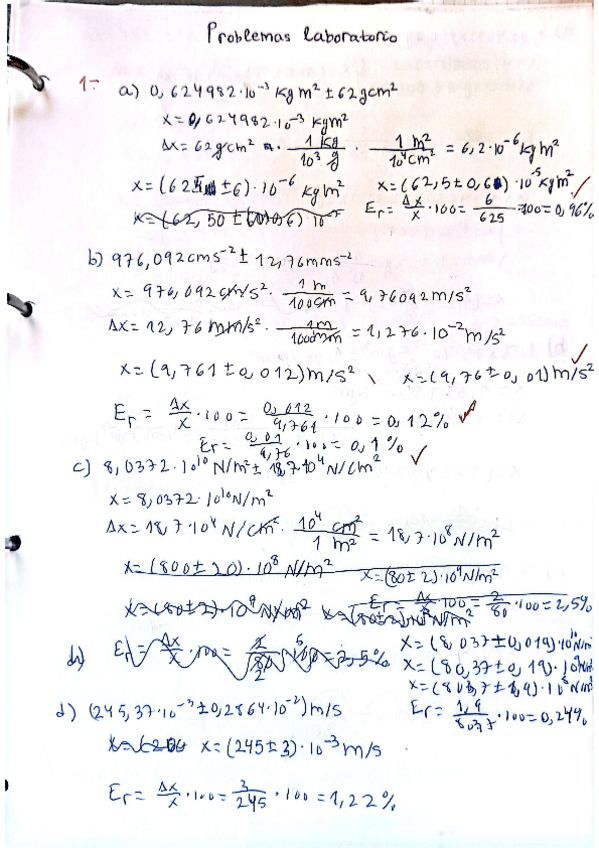 Problemas laboratorio
1- a) 0,624982·10⁻³ Kg m² ± 62 g cm²
x = 0,624982·10⁻³ Kg m²
Δx = 62 g cm² · 1 Kg / 10³ g · 1 m² / 10⁴ cm² = 6,2·10⁻⁶ Kg m²
x = (625 ± 6)·10⁻⁶ Kg m² x = (62,5 ± 0,6)·10⁻⁵ Kg m² ✓
Er = Δx / x · 100 = 6 / 625 · 100 = 0,96%
b) 976,092 cm s⁻² ± 12,76 mm s⁻²
x = 976,092 cm/s² · 1 m / 100 cm = 9,76092 m/s²
Δx = 12,76 mm/s² · 1 m / 1000 mm = 1,276·10⁻² m/s²
x = (9,761 ± 0,012) m/s² x = (9,76 ± 0,01) m/s² ✓
Er = Δx / x · 100 = 0,012 / 9,761 · 100 = 0,12% ✓
Er = 0,01 / 9,76 · 100 = 0,1% ✓
c) 8,0372·10¹⁰ N/m² ± 18,7·10⁴ N/cm²
x = 8,0372·10¹⁰ N/m²
Δx = 18,7·10⁴ N/cm² · 10⁴ cm² / 1 m² = 18,7·10⁸ N/m²
x = (800 ± 20)·10⁸ N/m² x = (80 ± 2)·10⁹ N/m²
x = (80 ± 2)·10⁹ N/m² Er = Δx / x · 100 = 2 / 80 · 100 = 2,5%
Er = Δx / x · 100 = 2 / 80 · 100 = 2,5%
x = (8,037 ± 0,019)·10¹⁰ N/m²
x = (80,37 ± 0,19)·10⁹ N/m²
x = (803,7 ± 1,9)·10⁸ N/m²
Er = 1,9 / 8037 · 100 = 0,24%
d) (245,37·10⁻³ ± 0,2864·10⁻²) m/s
x = (245 ± 3)·10⁻³ m/s
Er = Δx / x · 100 = 3 / 245 · 100 = 1,22%